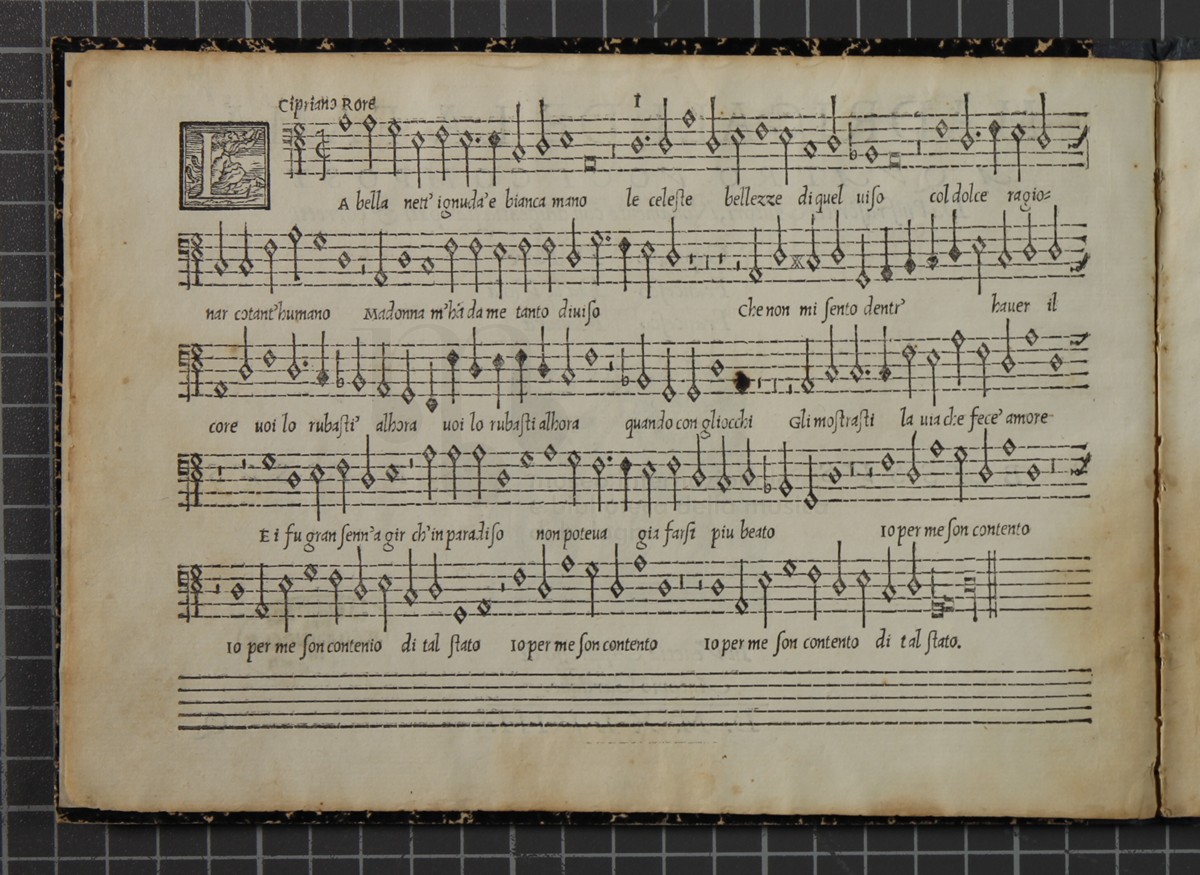 Cipriano Rore
I
L
A bella nett' ignuda'e bianca mano le celeste bellezze di quel uiso col dolce ragio=
nar cotant'humano Madonna m'hā da me tanto diuiso Che non mi sento dentr' hauer il
core uoi lo rubasti' alhora uoi lo rubasti alhora quando con gliocchi Gli mostrasti la uia che fece' amore
E i fu gran senn'a gir ch'in paradiso non poteua gia farsi piu beato Io per me son contento
Io per me son contenio di tal stato Io per me son contento Io per me son contento di tal stato.